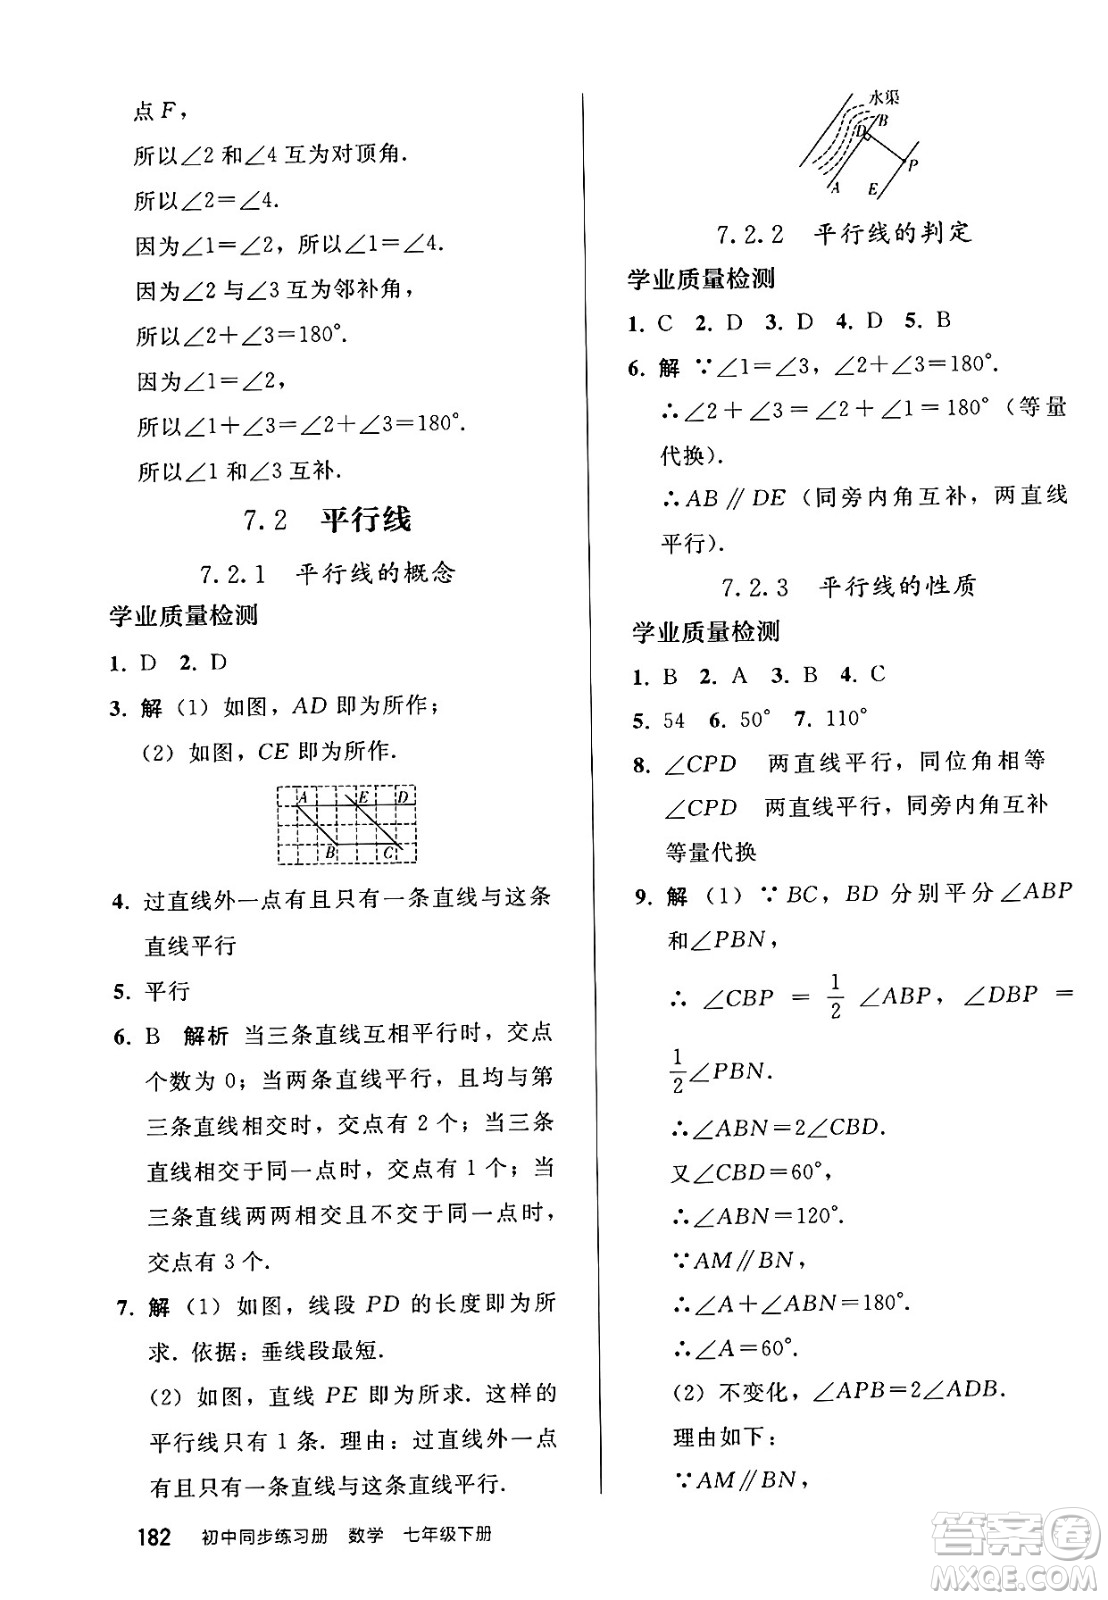 点 F，
所以∠2 和∠4 互为对顶角.
所以∠2＝∠4.
因为∠1＝∠2，所以∠1＝∠4.
因为∠2 与∠3 互为邻补角，
所以∠2＋∠3＝180°.
因为∠1＝∠2，
所以∠1＋∠3＝∠2＋∠3＝180°.
所以∠1 和∠3 互补.
7.2 平行线
7.2.1 平行线的概念
学业质量检测
1. D 2. D
3. 解（1）如图，AD 即为所作；
（2）如图，CE 即为所作.
A E D
B C
4. 过直线外一点有且只有一条直线与这条
直线平行
5. 平行
6. B 解析 当三条直线互相平行时，交点
个数为 0；当两条直线平行，且均与第
三条直线相交时，交点有 2 个；当三条
直线相交于同一点时，交点有 1 个；当
三条直线两两相交且不交于同一点时，
交点有 3 个.
7. 解（1）如图，线段 PD 的长度即为所
求. 依据：垂线段最短.
（2）如图，直线 PE 即为所求. 这样的
平行线只有 1 条. 理由：过直线外一点
有且只有一条直线与这条直线平行.
水渠
D B
P
A E
7.2.2 平行线的判定
学业质量检测
1. C 2. D 3. D 4. D 5. B
6. 解 ∵∠1＝∠3，∠2＋∠3＝180°.
∴∠2＋∠3＝∠2＋∠1＝180°（等量
代换）.
∴AB∥DE（同旁内角互补，两直线
平行）.
7.2.3 平行线的性质
学业质量检测
1. B 2. A 3. B 4. C
5. 54 6. 50° 7. 110°
8. ∠CPD 两直线平行，同位角相等
∠CPD 两直线平行，同旁内角互补
等量代换
9. 解（1）∵BC，BD 分别平分∠ABP
和∠PBN，
∴∠CBP＝1/2∠ABP，∠DBP＝
1/2∠PBN.
∴∠ABN＝2∠CBD.
又∠CBD＝60°，
∴∠ABN＝120°.
∵AM∥BN，
∴∠A＋∠ABN＝180°.
∴∠A＝60°.
（2）不变化，∠APB＝2∠ADB.
理由如下：
∵AM∥BN，
182 初中同步练习册 数学 七年级下册
答案圈
MXQE.COM